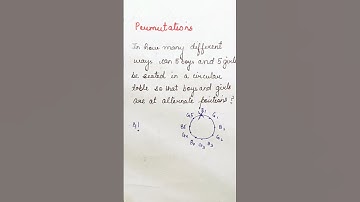 Permutations
In how many different
ways can 5 boys and 5 girls
be seated in a circular
table so that boys and girls
are at alternate positions?
B1
G5 G1
B5 B1
G4 G2
B4 G3 B3
4!